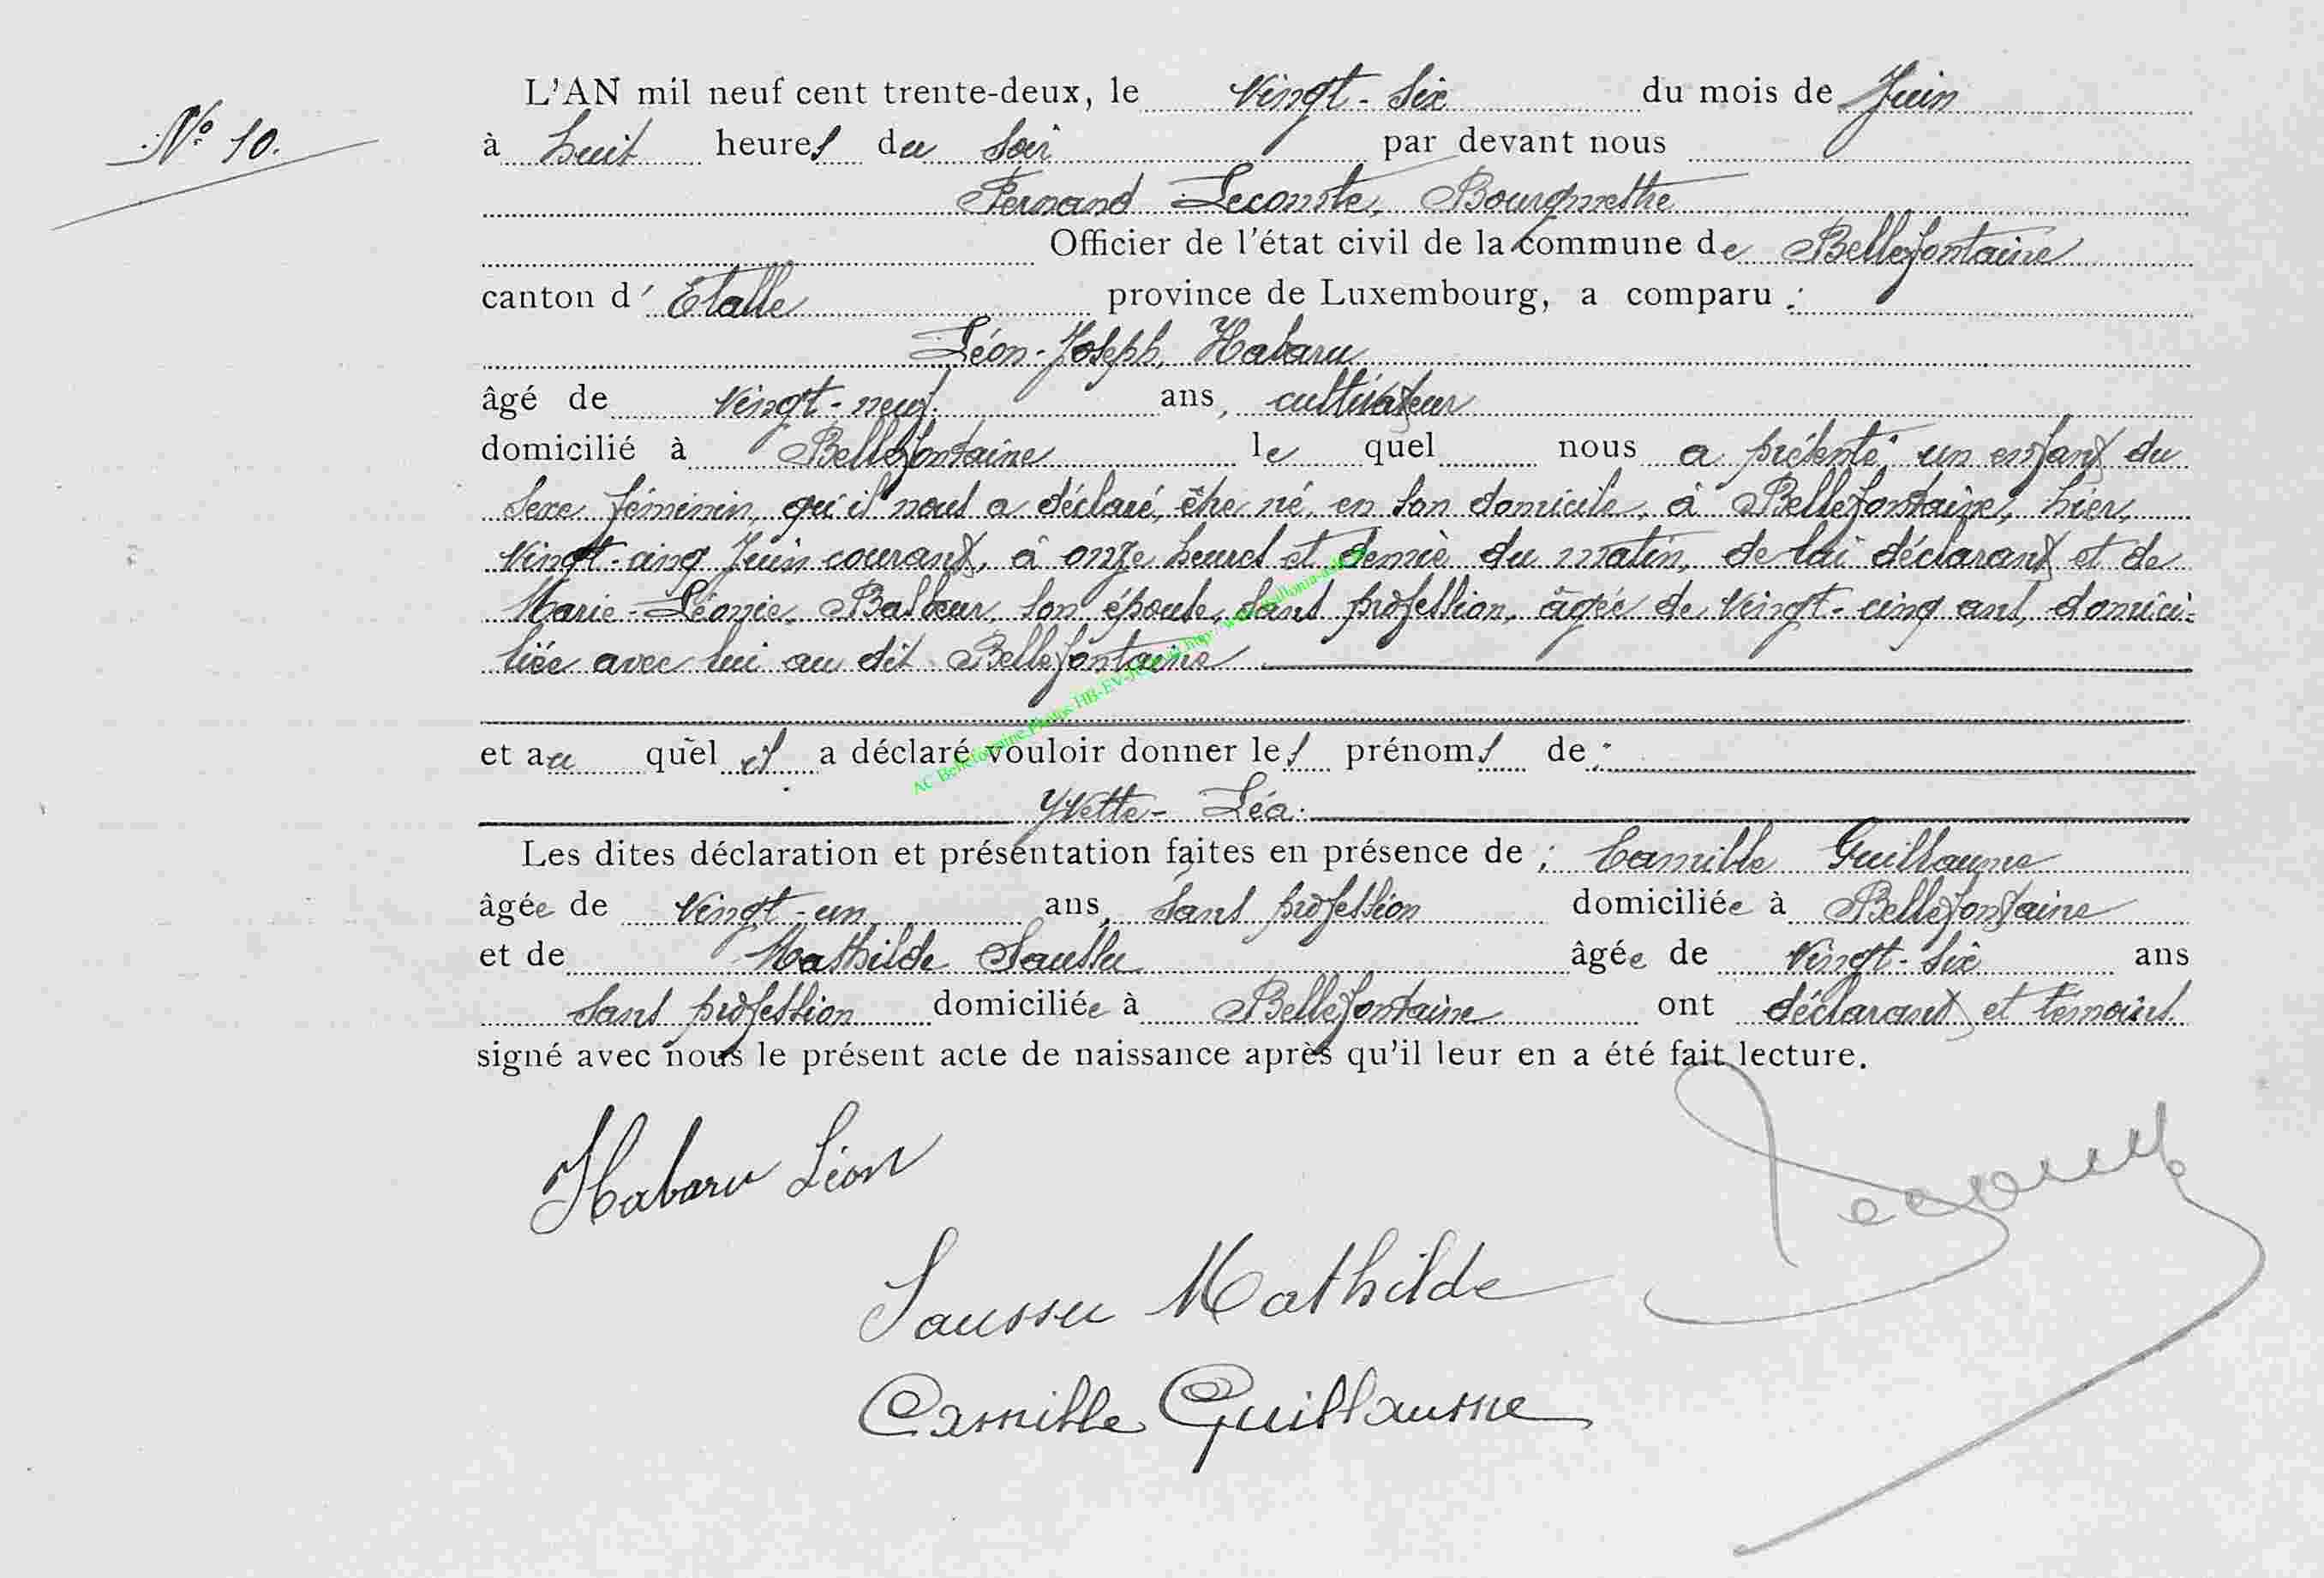 N° 10.
L'AN mil neuf cent trente-deux, le Vingt-six du mois de Juin
à huit heures du soir par devant nous
Fernand Lecomte, Bourgmestre
Officier de l'état civil de la commune de Bellefontaine
canton d' Etalle province de Luxembourg, a comparu :
Léon-Joseph, Habaru
âgé de vingt-neuf ans, cultivateur
domicilié à Bellefontaine le quel nous a présenté un enfant du
sexe féminin, qu'il nous a déclaré, être né, en son domicile, à Bellefontaine, hier,
vingt-cinq Juin courant, à onze heures et demie du matin, de lui déclarant et de
Marie-Léonie, son épouse, sans profession, âgée de vingt-cinq ans, domici-
liée avec lui au dit Bellefontaine
et au quel il a déclaré vouloir donner les prénoms de :
Yvette-Léa.
Les dites déclaration et présentation faites en présence de : Camille Guillaume
âgée de vingt-un ans, sans profession domiciliée à Bellefontaine
et de Mathilde Saussu âgée de vingt-six ans
sans profession domiciliée à Bellefontaine ont déclarant et témoins
signé avec nous le présent acte de naissance après qu'il leur en a été fait lecture.
Habaru Léon
Saussu Mathilde
Camille Guillaume
AC Bellefontaine Photos HB-EV-